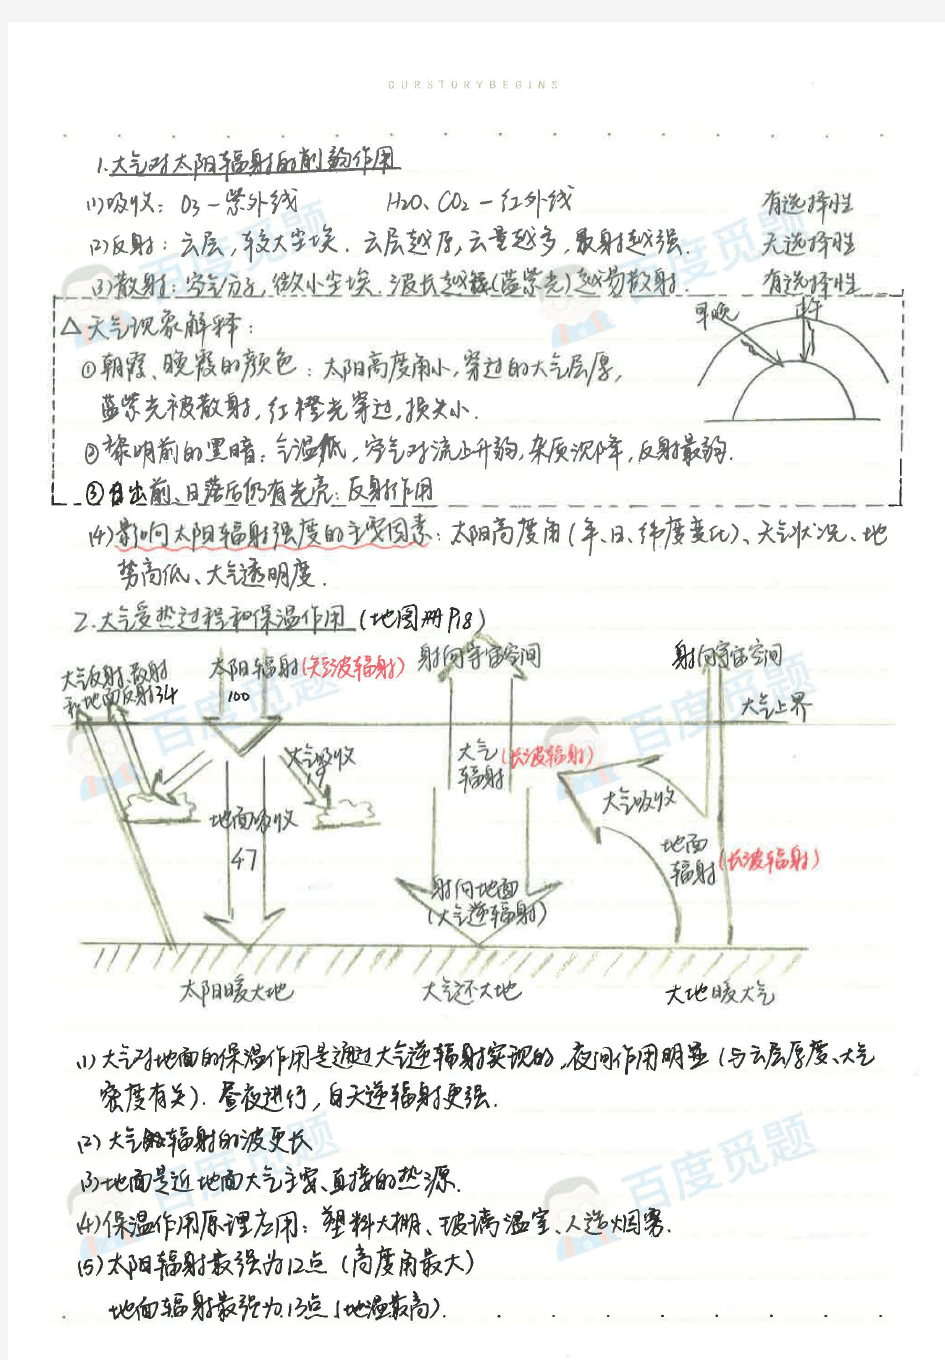 OURSTORYBEGINS
1.大气对太阳辐射的削弱作用
(1)吸收：O3-紫外线 H2O、CO2-红外线 有选择性
(2)反射：云层，较大尘埃．云层越厚，云量越多，反射越强． 无选择性
(3)散射：空气分子，微小尘埃．波长越短(蓝紫光)越易散射． 有选择性
△天气现象解释：
早晚 正午
①朝霞、晚霞的颜色：太阳高度角小，穿过的大气层厚，
蓝紫光被散射，红橙光穿过，损失小．
②黎明前的黑暗：气温低，空气对流上升弱，杂质沉降，反射最弱．
③日出前、日落后仍有光亮：反射作用
(4)影响太阳辐射强度的主要因素：太阳高度角(年、日、纬度变化)、天气状况、地
势高低、大气透明度．
2.大气受热过程和保温作用(地图册P18)
大气反射、散射
和地面反射34
太阳辐射(短波辐射)
100
射向宇宙空间
射向宇宙空间
大气上界
大气吸收
19
大气
辐射
(长波辐射)
大气吸收
地面吸收
47
地面
辐射
(长波辐射)
射向地面
(大气逆辐射)
太阳暖大地 大气还大地 大地暖大气
(1)大气对地面的保温作用是通过大气逆辐射实现的，夜间作用明显(与云层厚度、大气
密度有关)．昼夜进行，白天逆辐射更强．
(2)大气辐射的波更长
(3)地面是近地面大气主要、直接的热源．
(4)保温作用原理应用：塑料大棚、玻璃温室、人造烟雾．
(5)太阳辐射最强为12点(高度角最大)
地面辐射最强为13点(地温最高)．
百度觅题
百度觅题
百度觅题
百度觅题
百度觅题
百度觅题